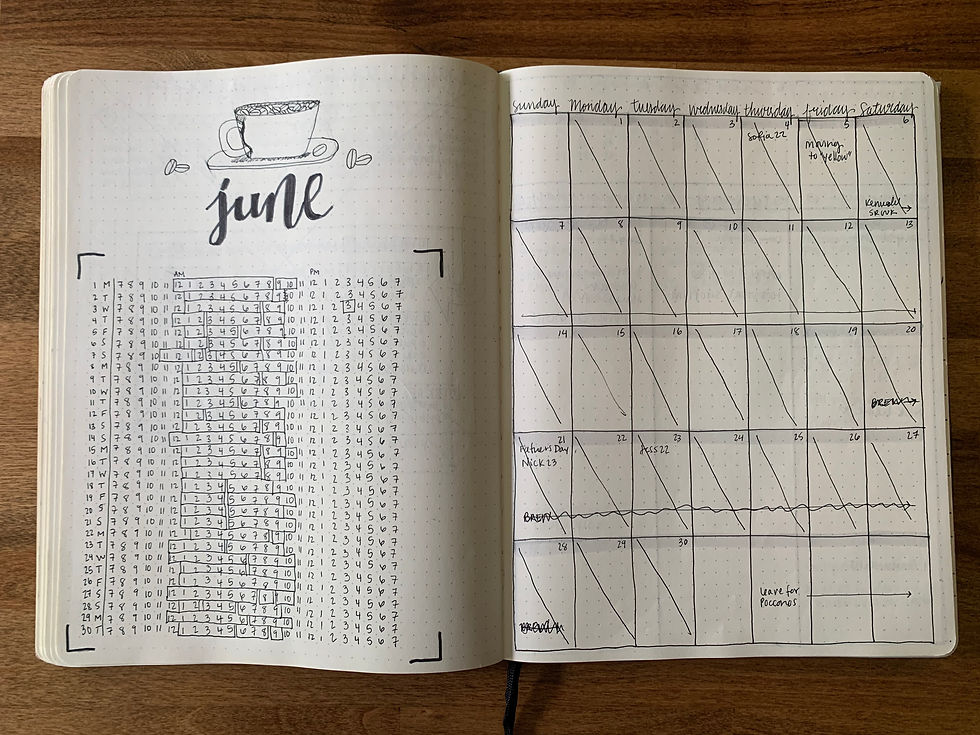 june
AM PM
1 M 7 8 9 10 11 12 1 2 3 4 5 6 7 8 9 10 11 12 1 2 3 4 5 6 7
2 T 7 8 9 10 11 12 1 2 3 4 5 6 7 8 9 10 11 12 1 2 3 4 5 6 7
3 W 7 8 9 10 11 12 1 2 3 4 5 6 7 8 9 10 11 12 1 2 3 4 5 6 7
4 T 7 8 9 10 11 12 1 2 3 4 5 6 7 8 9 10 11 12 1 2 3 4 5 6 7
5 F 7 8 9 10 11 12 1 2 3 4 5 6 7 8 9 10 11 12 1 2 3 4 5 6 7
6 S 7 8 9 10 11 12 1 2 3 4 5 6 7 8 9 10 11 12 1 2 3 4 5 6 7
7 S 7 8 9 10 11 12 1 2 3 4 5 6 7 8 9 10 11 12 1 2 3 4 5 6 7
8 M 7 8 9 10 11 12 1 2 3 4 5 6 7 8 9 10 11 12 1 2 3 4 5 6 7
9 T 7 8 9 10 11 12 1 2 3 4 5 6 7 8 9 10 11 12 1 2 3 4 5 6 7
10 W 7 8 9 10 11 12 1 2 3 4 5 6 7 8 9 10 11 12 1 2 3 4 5 6 7
11 T 7 8 9 10 11 12 1 2 3 4 5 6 7 8 9 10 11 12 1 2 3 4 5 6 7
12 F 7 8 9 10 11 12 1 2 3 4 5 6 7 8 9 10 11 12 1 2 3 4 5 6 7
13 S 7 8 9 10 11 12 1 2 3 4 5 6 7 8 9 10 11 12 1 2 3 4 5 6 7
14 S 7 8 9 10 11 12 1 2 3 4 5 6 7 8 9 10 11 12 1 2 3 4 5 6 7
15 M 7 8 9 10 11 12 1 2 3 4 5 6 7 8 9 10 11 12 1 2 3 4 5 6 7
16 T 7 8 9 10 11 12 1 2 3 4 5 6 7 8 9 10 11 12 1 2 3 4 5 6 7
17 W 7 8 9 10 11 12 1 2 3 4 5 6 7 8 9 10 11 12 1 2 3 4 5 6 7
18 T 7 8 9 10 11 12 1 2 3 4 5 6 7 8 9 10 11 12 1 2 3 4 5 6 7
19 F 7 8 9 10 11 12 1 2 3 4 5 6 7 8 9 10 11 12 1 2 3 4 5 6 7
20 S 7 8 9 10 11 12 1 2 3 4 5 6 7 8 9 10 11 12 1 2 3 4 5 6 7
21 S 7 8 9 10 11 12 1 2 3 4 5 6 7 8 9 10 11 12 1 2 3 4 5 6 7
22 M 7 8 9 10 11 12 1 2 3 4 5 6 7 8 9 10 11 12 1 2 3 4 5 6 7
23 T 7 8 9 10 11 12 1 2 3 4 5 6 7 8 9 10 11 12 1 2 3 4 5 6 7
24 W 7 8 9 10 11 12 1 2 3 4 5 6 7 8 9 10 11 12 1 2 3 4 5 6 7
25 T 7 8 9 10 11 12 1 2 3 4 5 6 7 8 9 10 11 12 1 2 3 4 5 6 7
26 F 7 8 9 10 11 12 1 2 3 4 5 6 7 8 9 10 11 12 1 2 3 4 5 6 7
27 S 7 8 9 10 11 12 1 2 3 4 5 6 7 8 9 10 11 12 1 2 3 4 5 6 7
28 S 7 8 9 10 11 12 1 2 3 4 5 6 7 8 9 10 11 12 1 2 3 4 5 6 7
29 M 7 8 9 10 11 12 1 2 3 4 5 6 7 8 9 10 11 12 1 2 3 4 5 6 7
30 T 7 8 9 10 11 12 1 2 3 4 5 6 7 8 9 10 11 12 1 2 3 4 5 6 7
sunday Monday tuesday wednesday thursday friday saturday
1 2 3 4 5 6
Sofia 22
Moving
to "yellow"
7 8 9 10 11 12 13
14 15 16 17 18 19 20
BREW
21 22 23 24 25 26 27
Fathers Day
Nick 23
Jess 22
BREW
28 29 30
leave for
Poconos